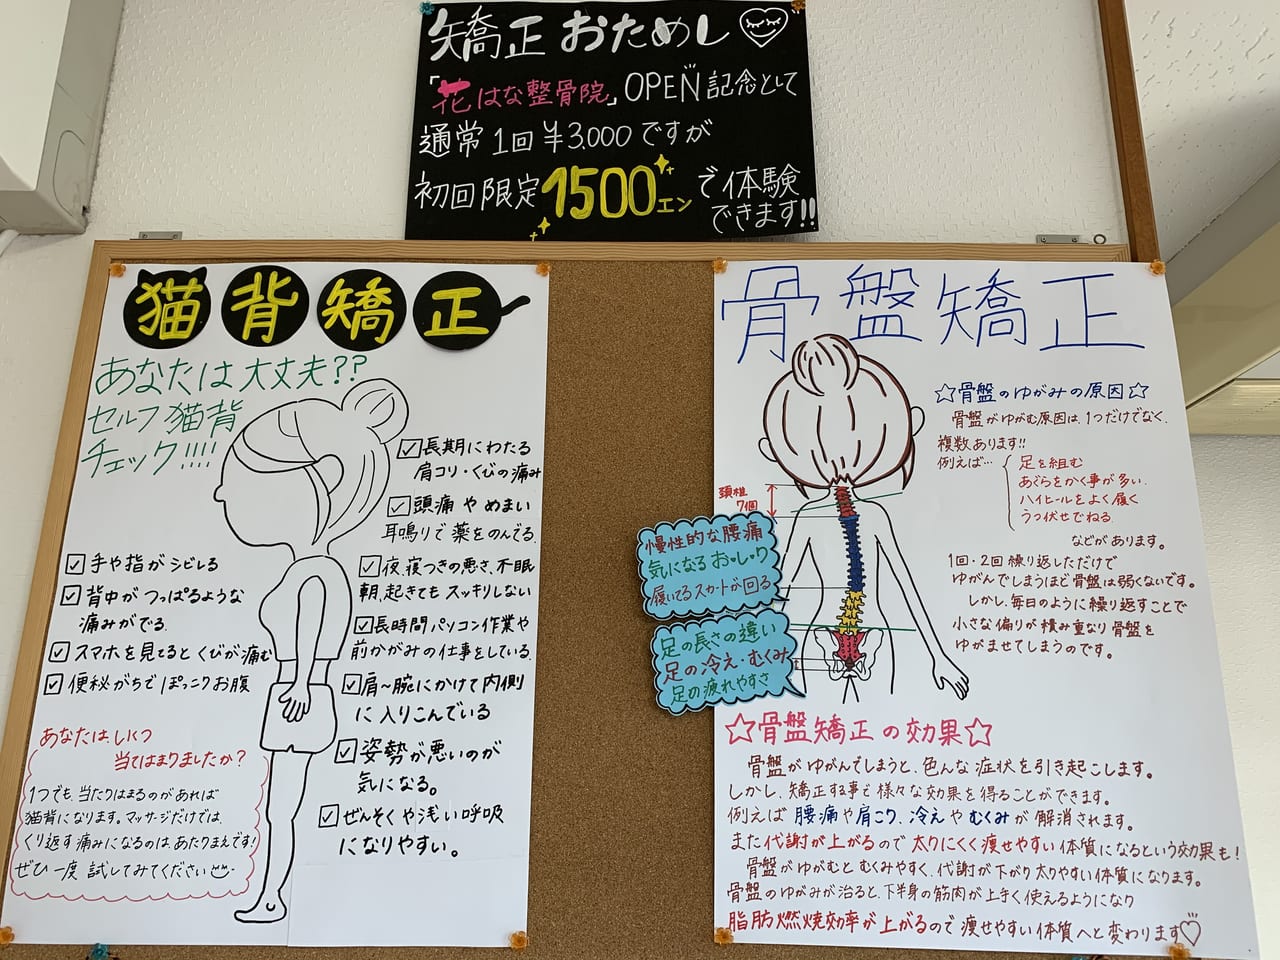 矯正 おためし
「花はな整骨院」OPEN記念として
通常1回¥3.000ですが
初回限定1500エンで体験
できます!!
猫背矯正
あなたは大丈夫??
セルフ猫背
チェック!!!!
長期にわたる
肩コリ・くびの痛み
頭痛やめまい
耳鳴りで薬をのんでる。
夜、寝つきの悪さ、不眠
朝、起きてもスッキリしない
長時間パソコン作業や
前かがみの仕事をしている。
肩〜腕にかけて内側
に入りこんでいる
姿勢が悪いのが
気になる。
ぜんそくや浅い呼吸
になりやすい。
手や指がシビレる
背中がつっぱるような
痛みがでる。
スマホを見てるとくびが痛む
便秘がちでぽっこりお腹
あなたは、いくつ
当てはまりましたか?
1つでも、当たりはまるのがあれば
猫背になります。マッサージだけでは、
くり返す痛みになるのは、あたりまえです!
ぜひ一度試してみてください
骨盤矯正
☆骨盤のゆがみの原因☆
骨盤がゆがむ原因は、1つだけでなく、
複数あります!!
例えば…
足を組む
あぐらをかく事が多い。
ハイヒールをよく履く
うつ伏せでねる
などがあります。
1回・2回繰り返しただけで
ゆがんでしまうほど骨盤は弱くないです。
しかし、毎日のように繰り返すことで
小さな偏りが積み重なり骨盤を
ゆがませてしまうのです。
頚椎
7個
慢性的な腰痛
気になるお・し・り
履いてるスカートが回る
足の長さの違い
足の冷え・むくみ
足の疲れやすさ
☆骨盤矯正の効果☆
骨盤がゆがんでしまうと、色んな症状を引き起こします。
しかし、矯正する事で様々な効果を得ることができます。
例えば腰痛や肩こり、冷えやむくみが解消されます。
また代謝が上がるので太りにくく痩せやすい体質になるという効果も!
骨盤がゆがむとむくみやすく、代謝が下がり太りやすい体質になります。
骨盤のゆがみが治ると、下半身の筋肉が上手く使えるようになり
脂肪燃焼効率が上がるので痩せやすい体質へと変わります♡